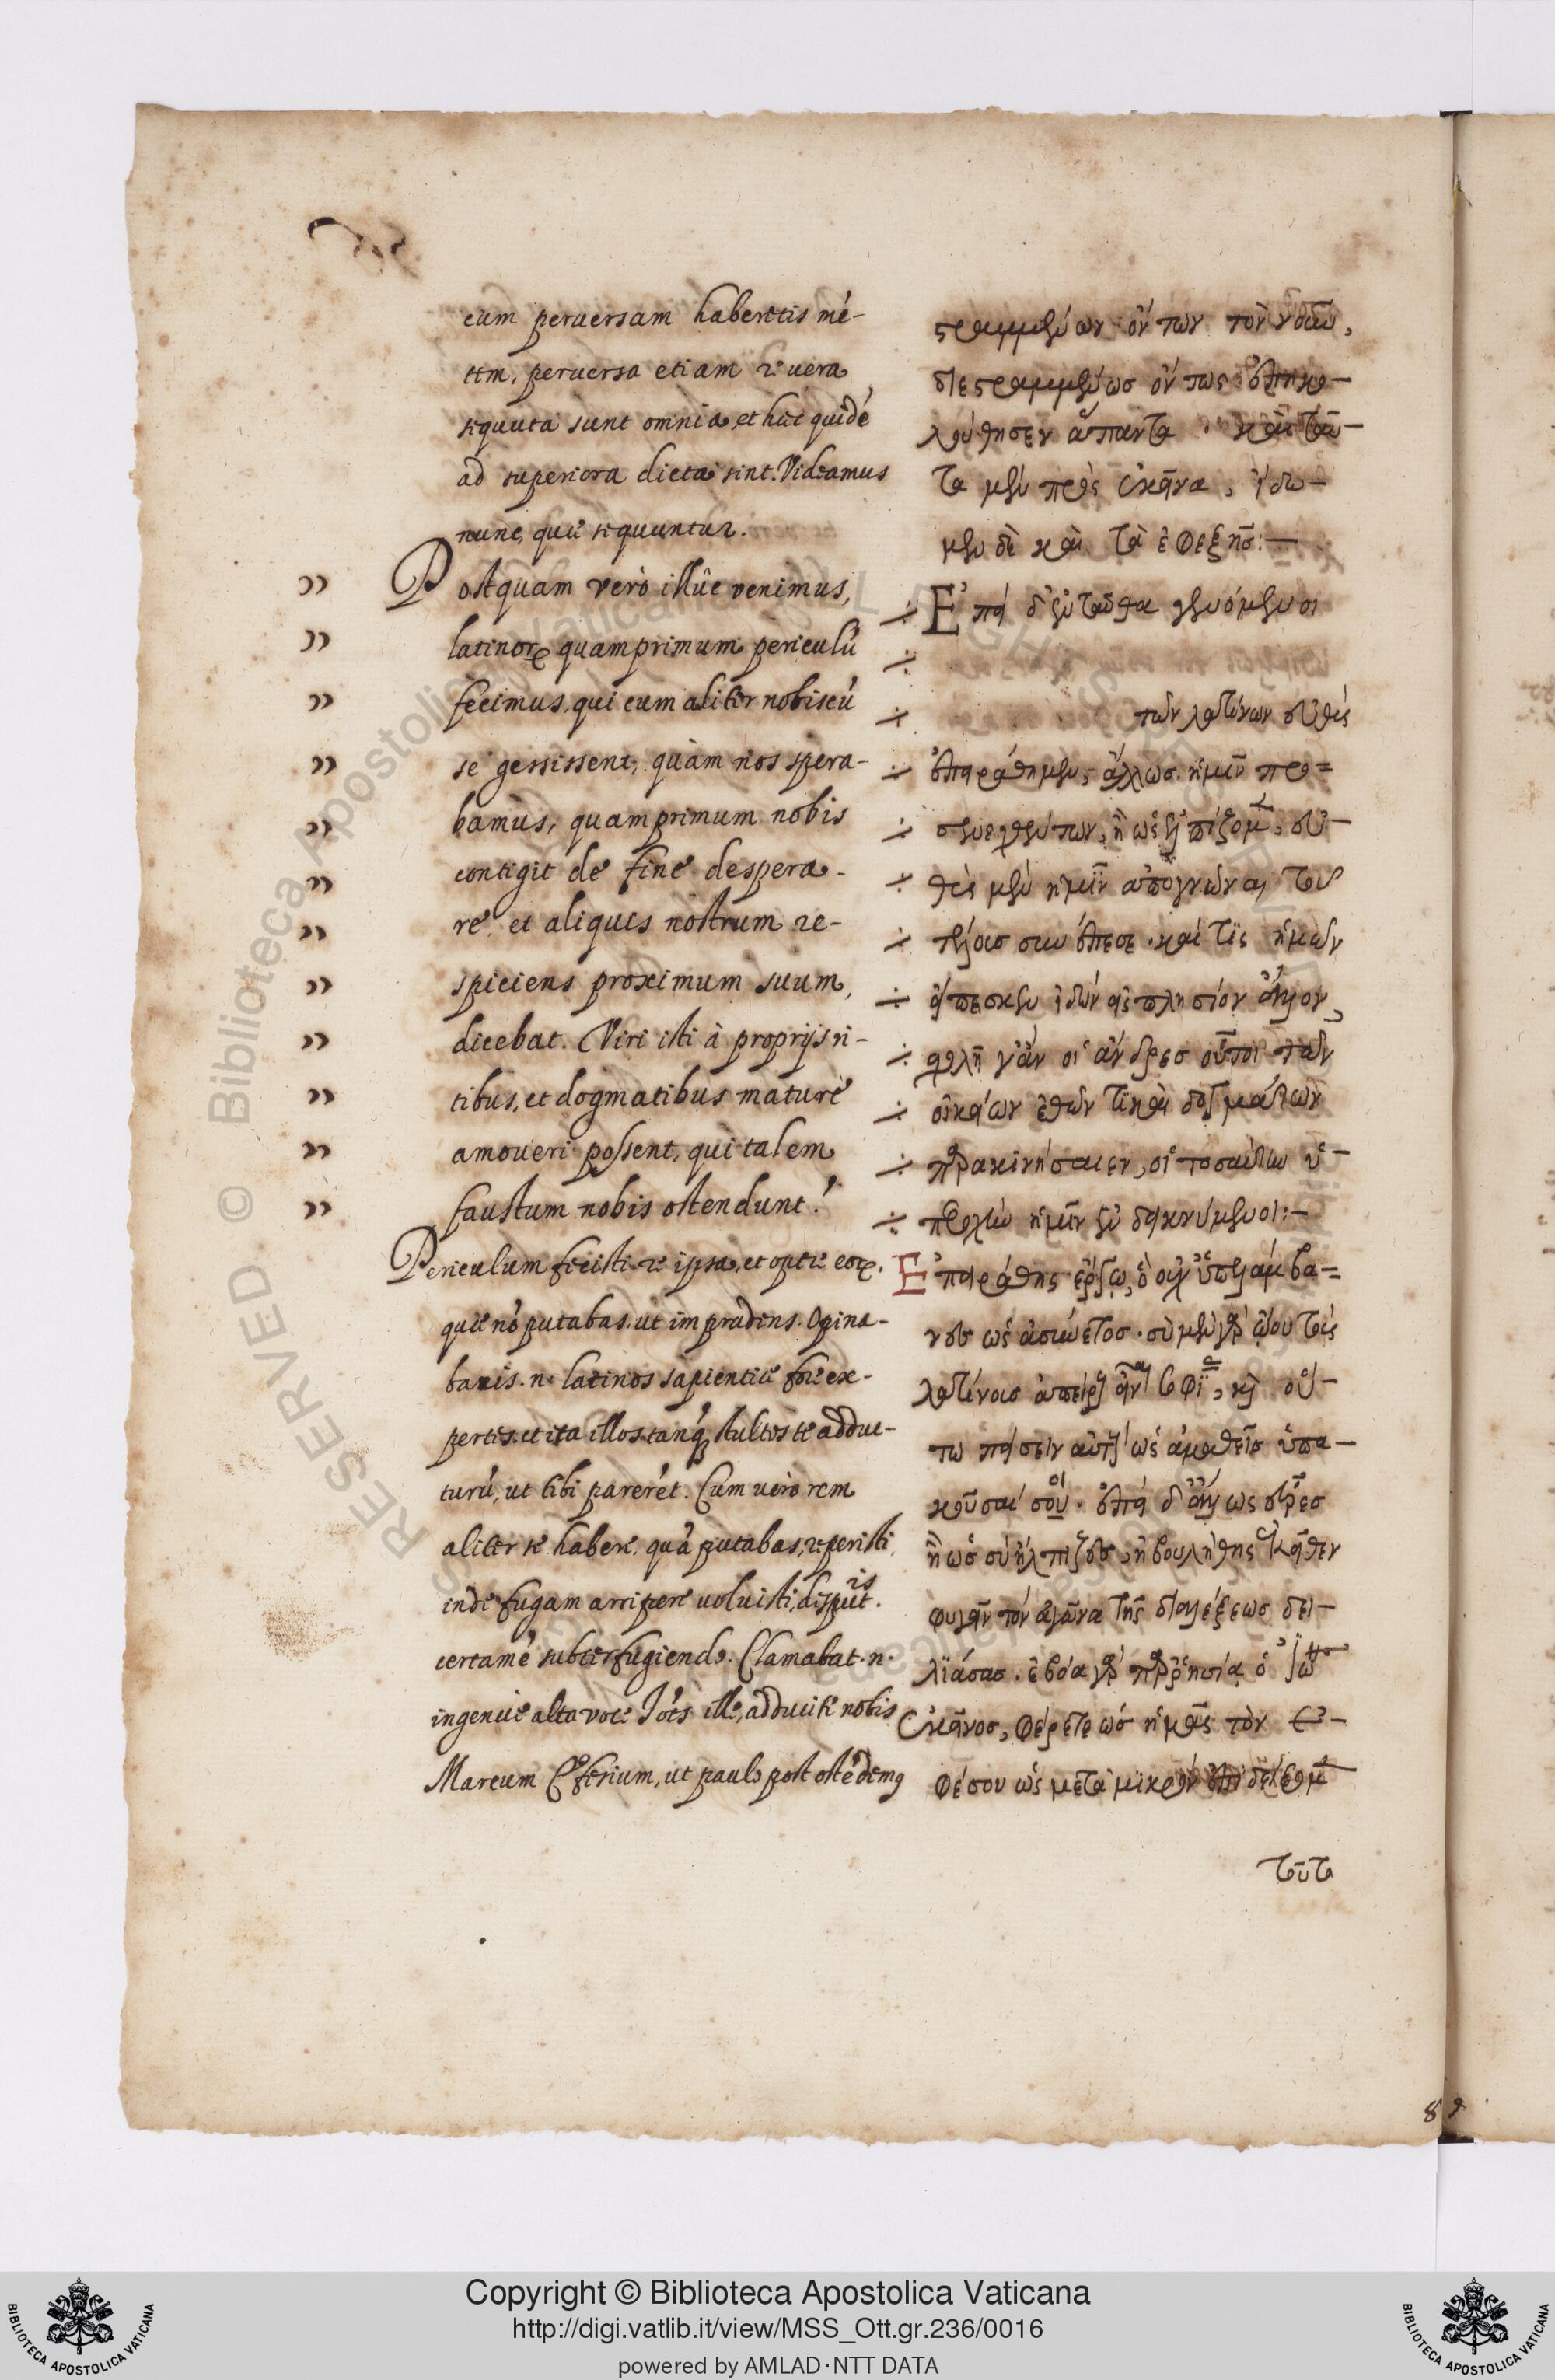 cum peruersam haberetis mē-
tem, peruersa etiam re uera
sequuta sunt omnia, et hæc quidē
ad superiora dicta sint. Videamus
nunc, quæ sequuntur.
Postquam verò illûc venimus,
latinorꝝ quamprimum periculū
fecimus, qui cum aliter nobiscū
se gessissent, quàm nos spera-
bamùs, quamprimum nobis
contigit de fine despera-
re, et aliquis nostrum re-
spiciens proximum suum,
dicebat. Viri isti à proprijs ri-
tibus, et dogmatibus maturè
amoueri possent, qui talem
faustum nobis ostendunt?
Periculum fecisti re ipsa, et opere eorꝝ,
quæ nō putabas, ut imprudens. Opina-
baris .n. latinos sapientiæ fore ex-
pertes, et ita illos tanq̃ stultos te adduc-
turū, ut tibi parerēt. Cum uero rem
aliter se habere, quā putabas, reperisti,
inde fugam arripere uoluisti, disput.is
certamē subterfugiendo. Clamabat .n.
ingenue alta voce Joēs ille, adducite nobis
Marcum Efesium, ut paulo post ostēdemꝰ
στραμμένων ὄντων τὸν νοῦν,
διεστραμμένως ὄντως ἐπηκο-
λούθησεν ἅπαντα. καὶ ταῦ-
τα μὲν πρὸς ἐκεῖνα, ἴδω-
μεν δὲ καὶ τὰ ἐφεξῆς:—
Ἐπεὶ δ' ἐνταῦθα γενόμενοι
τῶν λατίνων εὐθὺς
ἐπειράθημεν, ἄλλως ἡμῖν προ=
σενεχθέντων, ἢ ὡς ἠλπίζομ, εὐ-
θὺς μὲν ἡμῖν ἀπογνῶναι τοῦ
τέλους συνέπεσε. καί τις ἡμῶν
εἴπεσκεν ἰδὼν εἰς πλησίον ἄλλον,
σχολῇ γἂν οἱ ἄνδρες οὗτοι τῶν
οἰκείων ἐθῶν τὶ καὶ δογμάτων
παρακινήσαιεν, οἱ τοσαύτην ὑ-
περοχὴν ἡμῖν ἐνδεικνύμενοι:—
Ἐπειράθης ἔργῳ, ὃ οὐχ ὑπελάμβα=
νες ὡς ἀσύνετος. σὺ μὲν γὰρ ᾤου τοὺς
λατίνους ἀπείρους εἶναι σοφίας, καὶ οὕ-
τω πείσειν αὐτοὺς ὡς ἀμαθεῖς ὑπα-
κοῦσαί σου. ἐπεὶ δ' ἄλλως εὗρες
ἢ ὡς σὺ ἤλπιζες, ἠβουλήθης ἐκεῖθεν
φυγεῖν τὸν ἀγῶνα τῆς διαλέξεως δει-
λιάσας. ἐβόα γὰρ παρρησίᾳ ὁ Ἰω
ἐκεῖνος, φέρετε ὡς ἡμᾶς τὸν Ἐ-
φέσου ὡς μετὰ μικρὸν
τοῦτο
89
RESERVED © Biblioteca Apostolica Vaticana
Copyright © Biblioteca Apostolica Vaticana
http://digi.vatlib.it/view/MSS_Ott.gr.236/0016
powered by AMLAD·NTT DATA
BIBLIOTECA APOSTOLICA VATICANA
BIBLIOTECA APOSTOLICA VATICANA